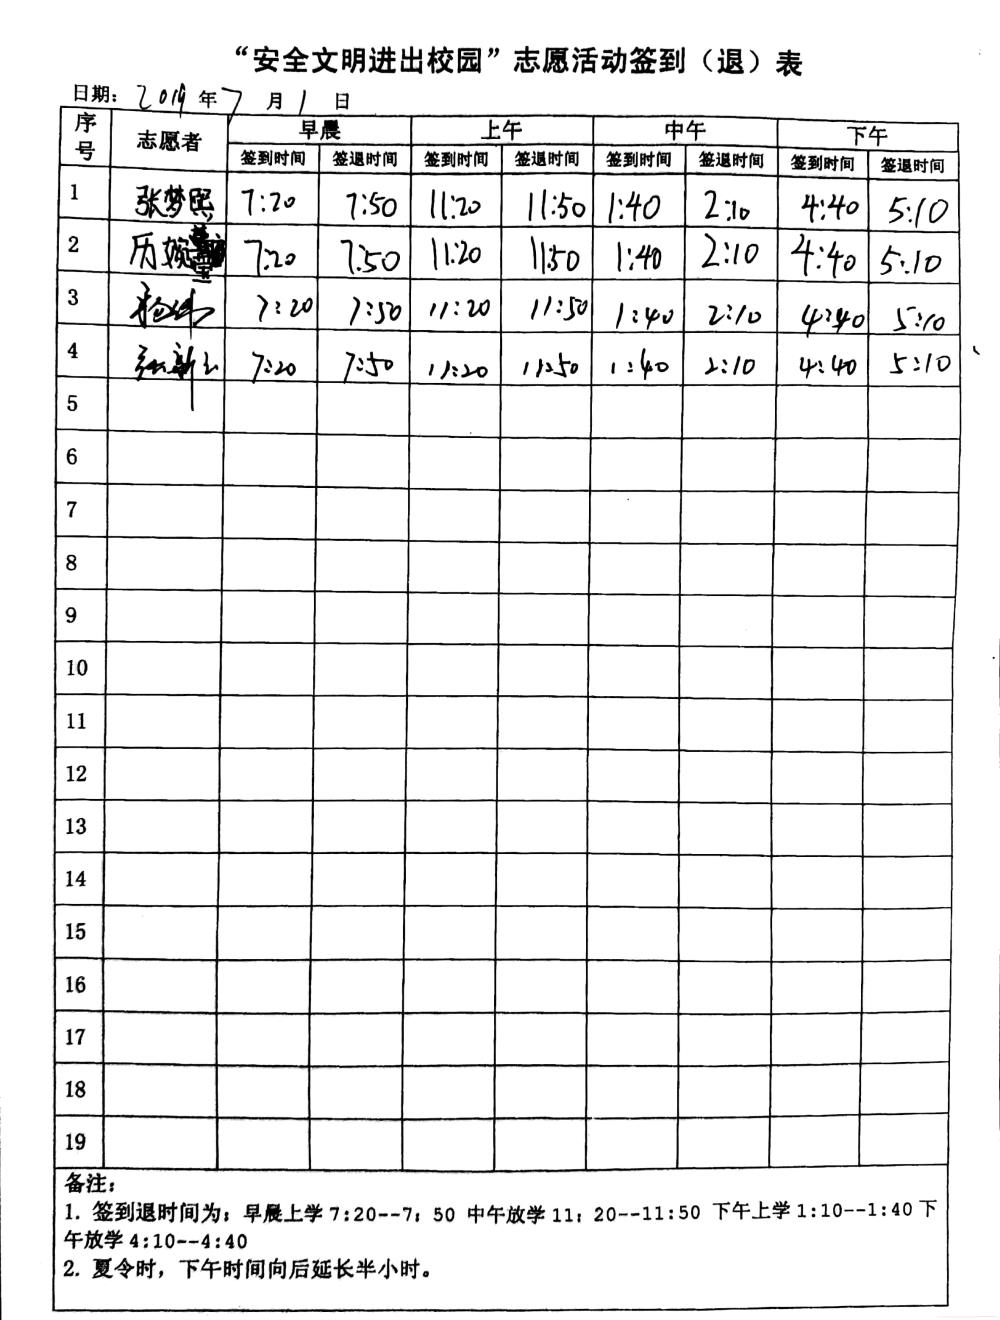 “安全文明进出校园”志愿活动签到（退）表
日期：2019年7月1日
序号 志愿者 早晨 上午 中午 下午
签到时间 签退时间 签到时间 签退时间 签到时间 签退时间 签到时间 签退时间
1 张梦熙 7:20 7:50 11:20 11:50 1:40 2:10 4:40 5:10
2 历婉 7:20 7:50 11:20 11:50 1:40 2:10 4:40 5:10
3 7:20 7:50 11:20 11:50 1:40 2:10 4:40 5:10
4 张新 7:20 7:50 11:20 11:50 1:40 2:10 4:40 5:10
5
6
7
8
9
10
11
12
13
14
15
16
17
18
19
备注：
1. 签到退时间为：早晨上学7:20--7：50 中午放学11：20--11:50 下午上学1:10--1:40下
午放学4:10--4:40
2. 夏令时，下午时间向后延长半小时。